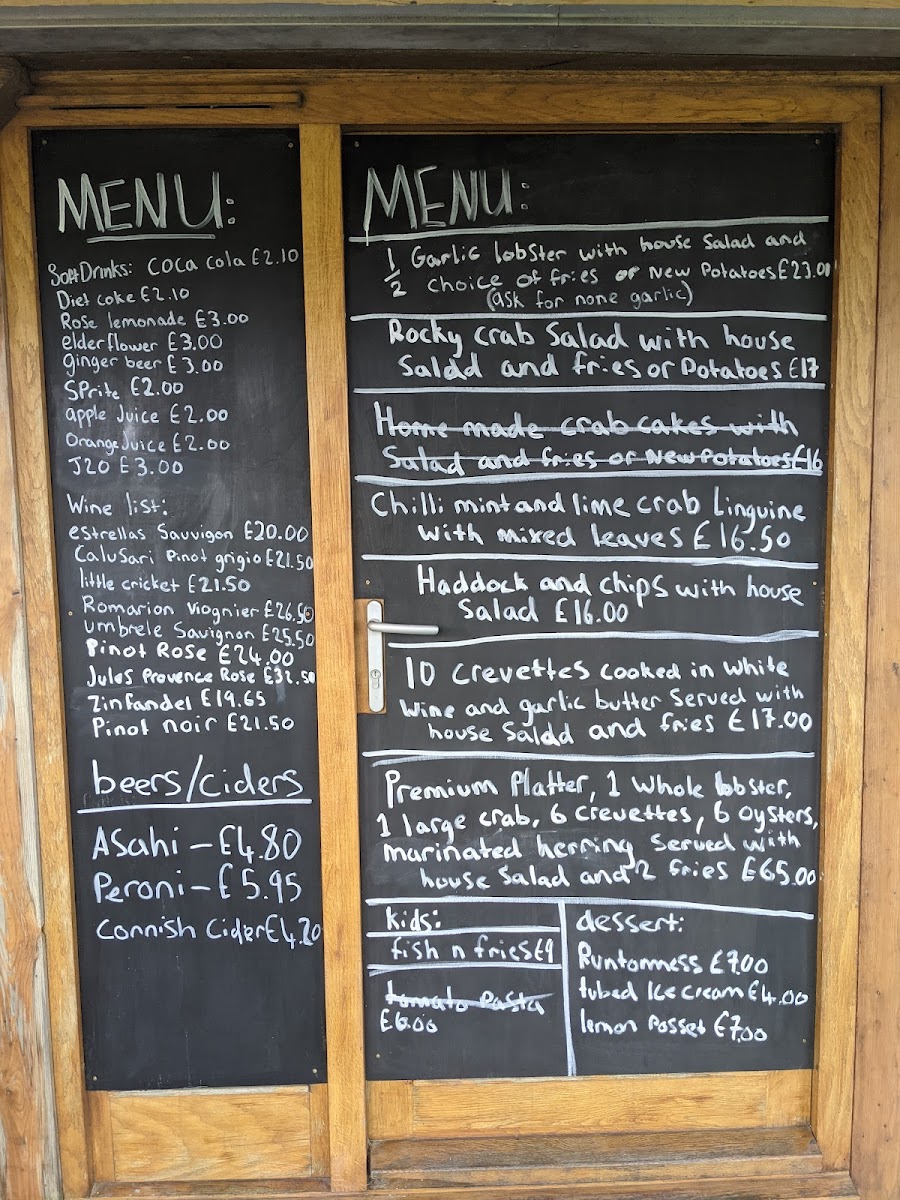 MENU:
Soft Drinks: coca cola £2.10
Diet coke £2.10
Rose lemonade £3.00
elderflower £3.00
ginger beer £3.00
Sprite £2.00
apple Juice £2.00
Orange Juice £2.00
J2O £3.00
Wine list:
estrellas Sauvigon £20.00
Calusari Pinot grigio £21.50
little cricket £21.50
Romarion Viognier £26.50
umbrele Sauvignon £25.50
Pinot Rose £24.00
Jules Provence Rose £32.50
Zinfandel £19.65
Pinot noir £21.50
beers/ciders
Asahi - £4.80
Peroni - £5.95
Cornish Cider £4.20
MENU:
1/2 Garlic lobster with house Salad and
choice of fries or New Potatoes £23.00
(ask for none garlic)
Rocky crab Salad with house
Saldd and fries or Potatoes £17
Home made crab cakes with
Salad and fries or New Potatoes £16
Chilli mint and lime crab Linguine
with mixed leaves £16.50
Haddock and chips with house
Salad £16.00
10 crevettes cooked in white
wine and garlic butter Served with
house Saldd and fries £17.00
Premium Platter, 1 whole lobster,
1 large crab, 6 crevettes, 6 oysters,
marinated herring Served with
house Salad and 2 fries £65.00
kids:
fish n fries £9
tomato Pasta
£6.00
dessert:
Runtonmess £7.00
tubed Ice cream £4.00
lemon Posset £7.00